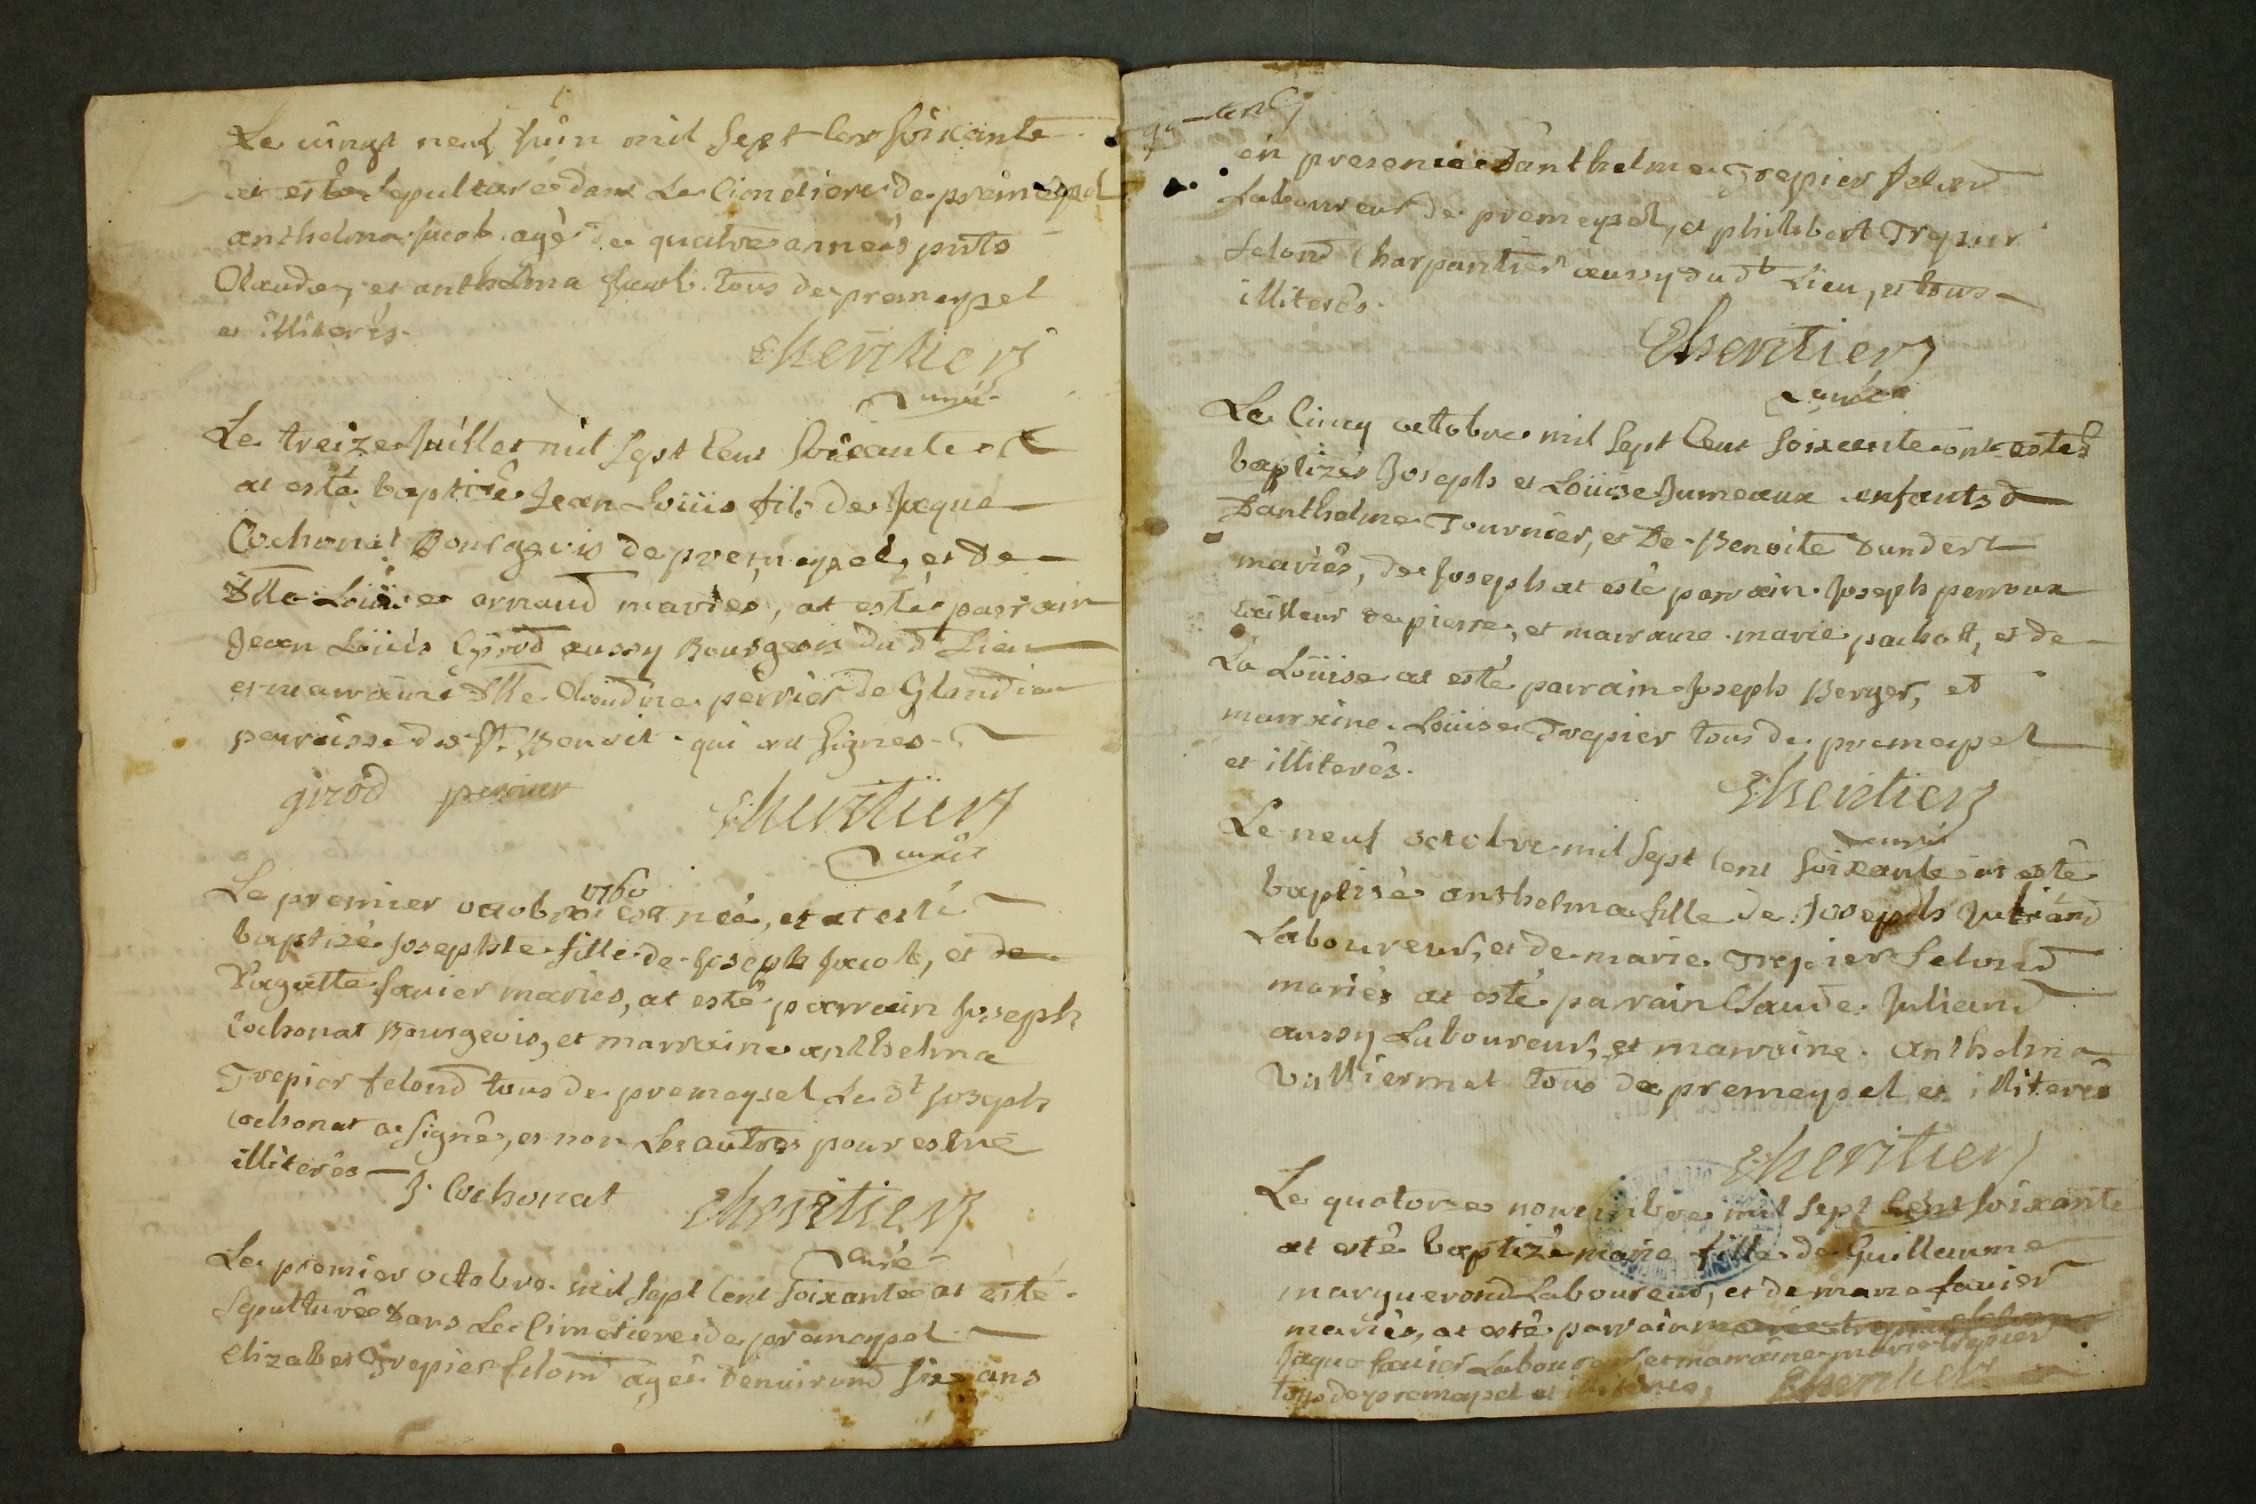 Le vingt neuf juin mil sept cent soixante
at esté sepulturé dans le cimetiere de premeysel
anthelma jacob agé de quatre années
Claude, et anthelma jacob tous de premeysel
et illiterés.
Lheritier
curé
Le treize juillet mil sept cent soixante
at esté baptisé Jean Loüis fils de Jaque
Cochonat Bourgeois de premeysel, et de
Dlle Loüise arnaud mariés, at esté parrain
Jean Loüis Girod aussy Bourgeois du dt Lieu
et marraine Dlle Claudine perrier de Glandieu
parroisse de St. Benoit qui ont signés
girod perrier
Lheritier
curé
1760
Le premier octobre est née, et at esté
baptizé Josephte fille de Joseph Jacob, et de
Savier mariés, at esté parrain Joseph
Cochonat Bourgeois, et marraine anthelma
Trepier felond tous de premeysel Le dt Joseph
Cochonat a signé, et non Les autres pour estre
illiterés J. Cochonat
Lheritier
curé
Le premier octobre mil sept cent soixante at esté
sepulturée dans Le Cimetiere de premeysel
Elizabet Trepier felond agée denuirond six ans
en presence Danthelme Trepier felond
Laboureur de premeysel, et philibert Trepier
felond Charpantier aussy du dt Lieu, et tous
illiterés.
Lheritier
curé
Le Cinq octobre mil sept Cent soixante ont estés
baptizés Joseph et Loüise Jumeaux enfants
Danthelme Tournier, et De Benoite
mariés, de Joseph at esté parrain Joseph perroux
tailleur de pierre, et marraine marie pachott, et de
La Loüise at esté parrain Joseph Berger, et
marraine Loüise Trepier tous de premeysel
et illiterés.
Lheritier
curé
Le neuf octobre mil sept Cent soixante at esté
baptisé anthelma fille de Joseph Juliand
Laboureur, et de marie Trepier felond
mariés at esté parain Claude Juliand
aussy Laboureur, et marraine anthelma
Vulliermet tous de premeysel et illiterés
Lheritier
Le quatorze novembre mil sept Cent soixante
at esté baptizé marie fille de Guillaume
marguerond Laboureur, et de marie favier
mariés, at esté parrain
Jaque favier Laboureur, et marraine marie trepier
tous de premeysel et illiterés, Lheritier